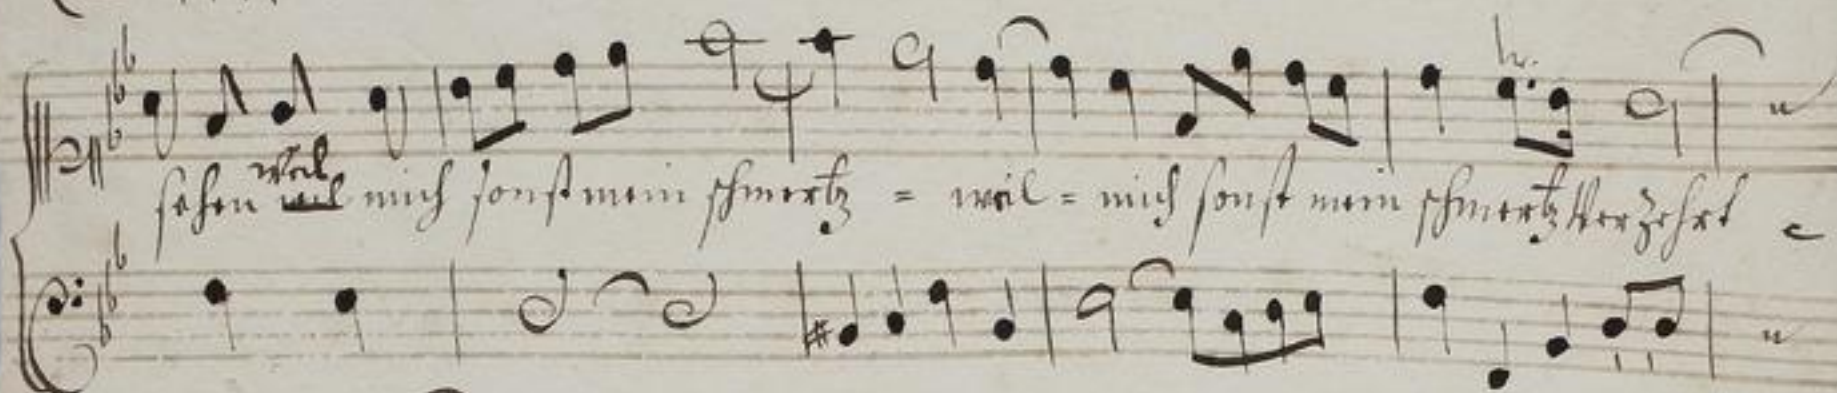 weil
sehen weil mich sonst mein schmertz = weil = mich sonst mein schmertz verzehrt